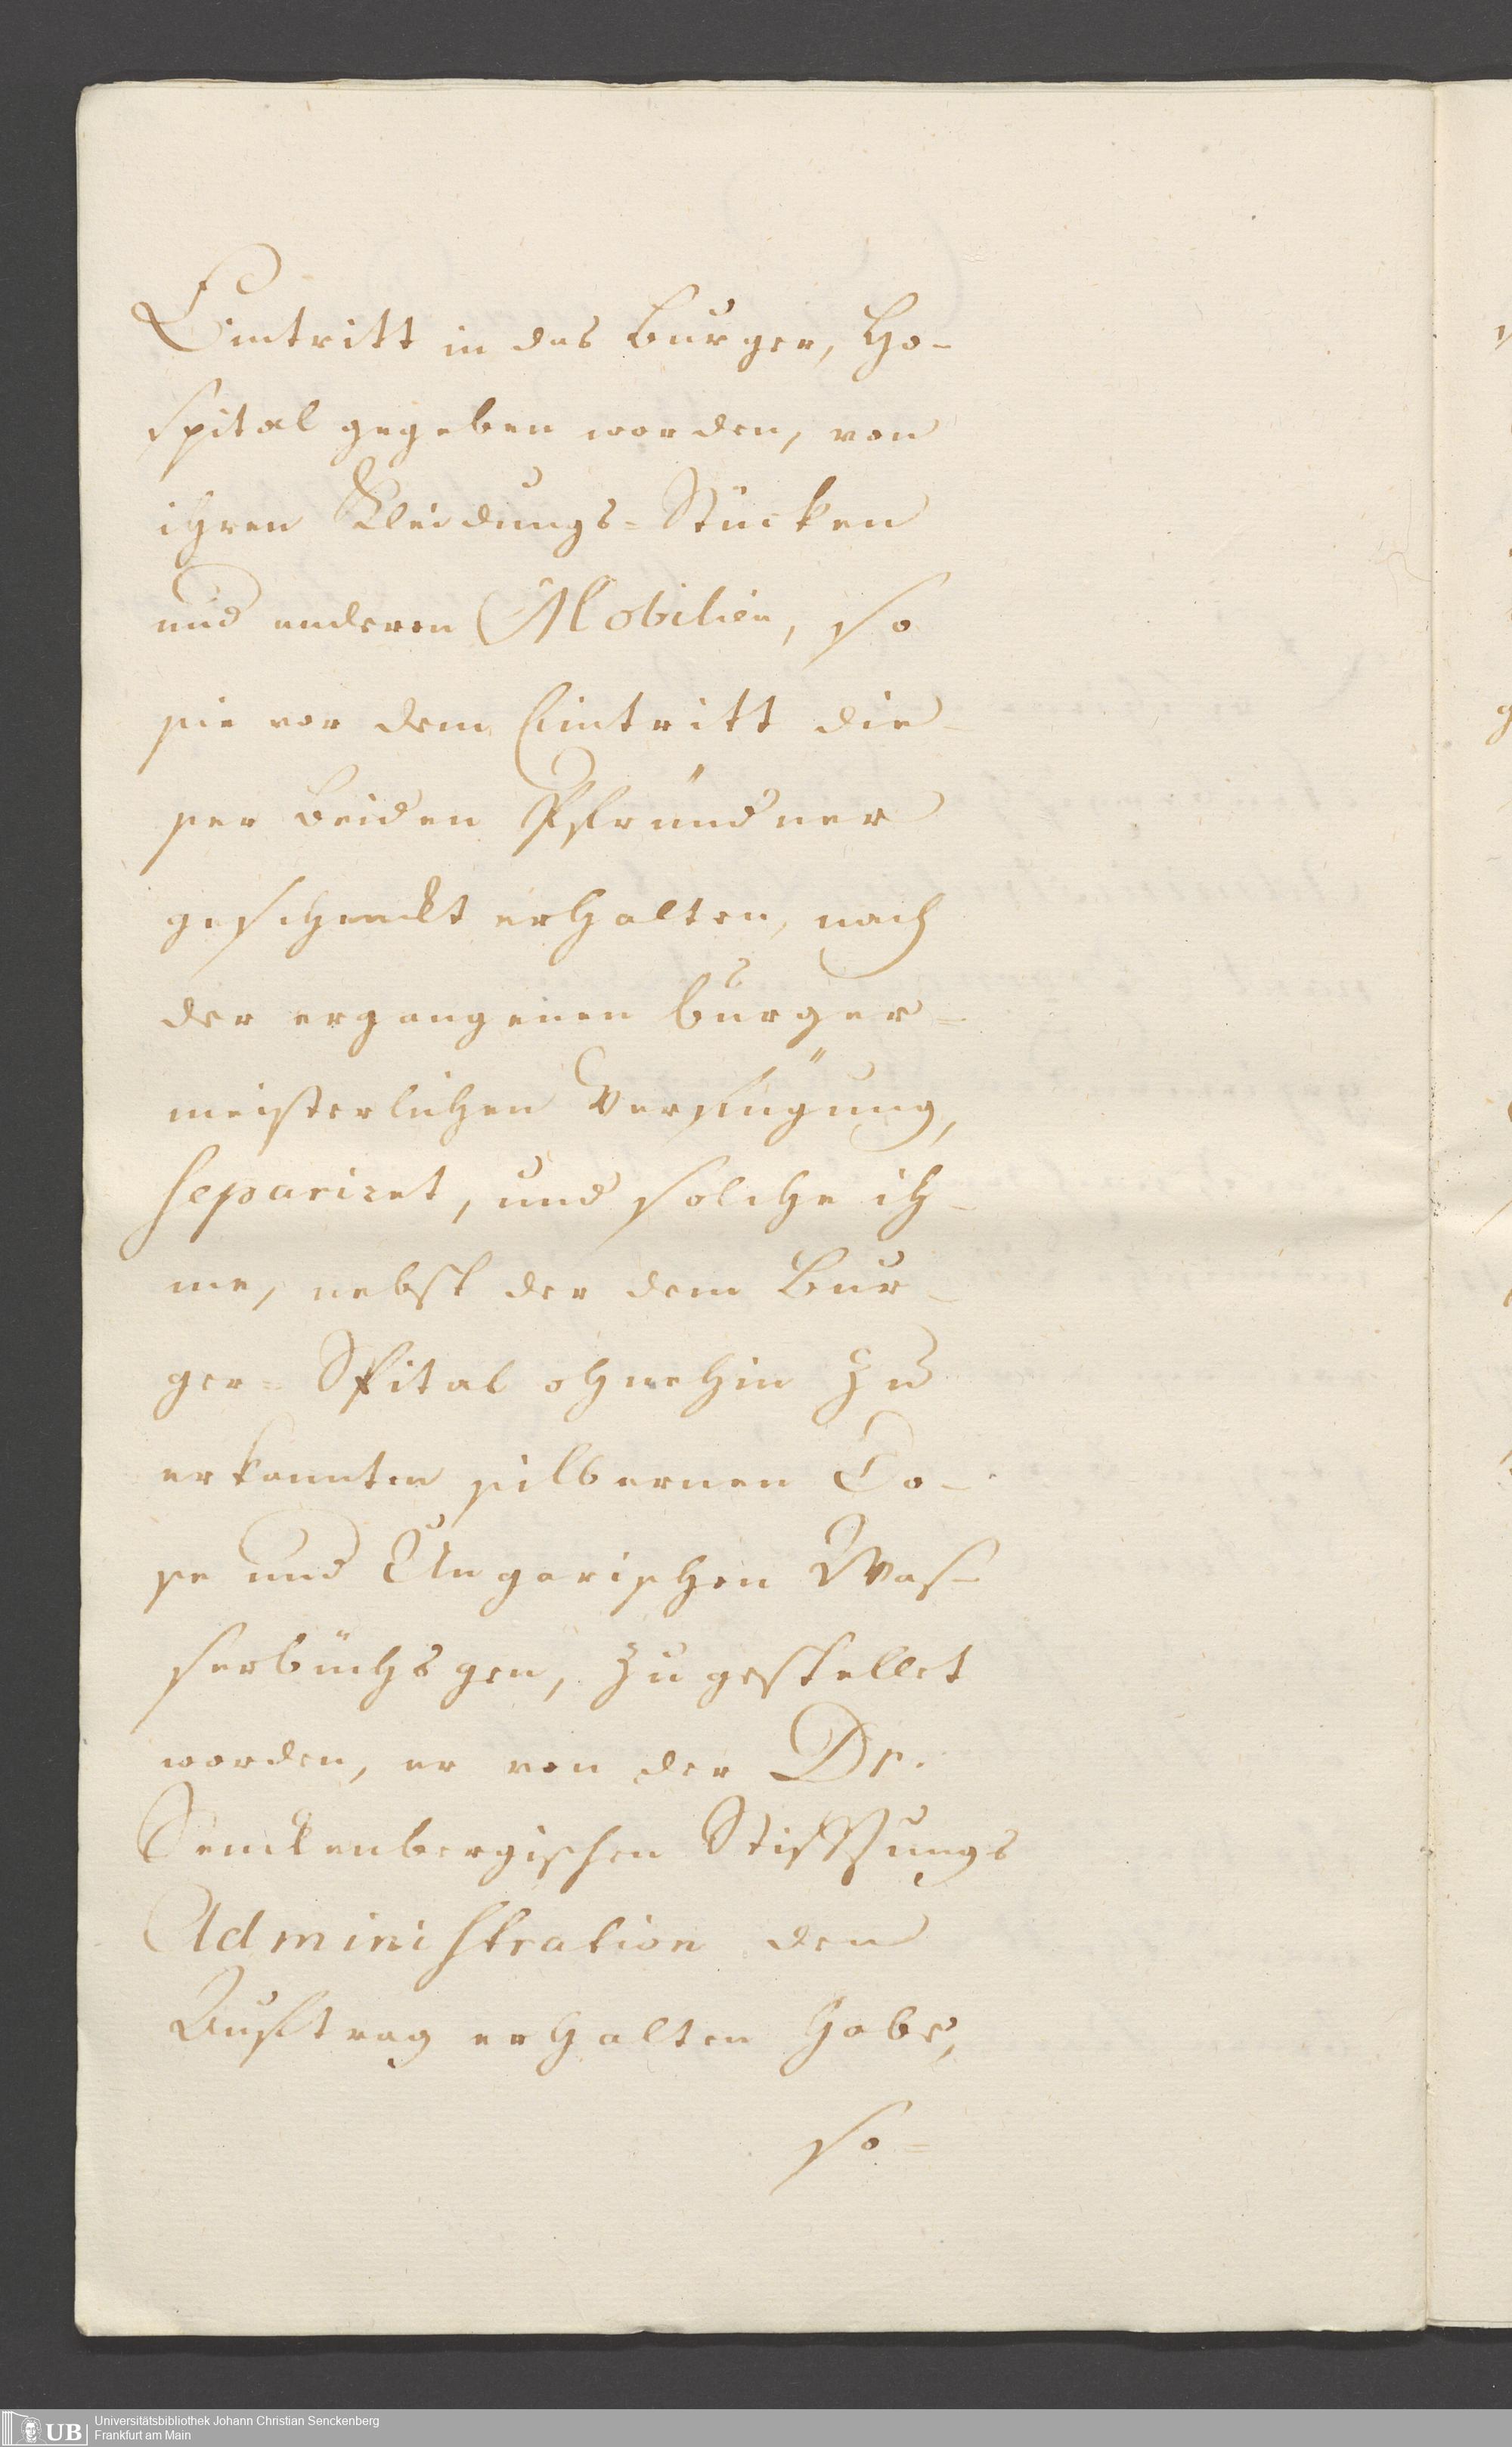 Eintritt in das Burger, Ho-
spital gegeben worden, von
ihren Kleidungs-Stücken
und anderen Mobilien, so
sie vor dem Eintritt die-
ser beiden Pfründner
geschenckt erhalten, nach
der ergangenen burger-
meisterlichen Verfügung,
separiret, und solche ih-
me, nebst der dem Bur-
ger-Spital ohnehin zu
erkannten silbernen Do-
se und Ungarischen Was-
serbüchsgen, zugestellet
worden, er von der Dr.
Senckenbergischen Stifftungs
Administration den
Auftrag erhalten habe,
so-
UB
Universitätsbibliothek Johann Christian Senckenberg
Frankfurt am Main